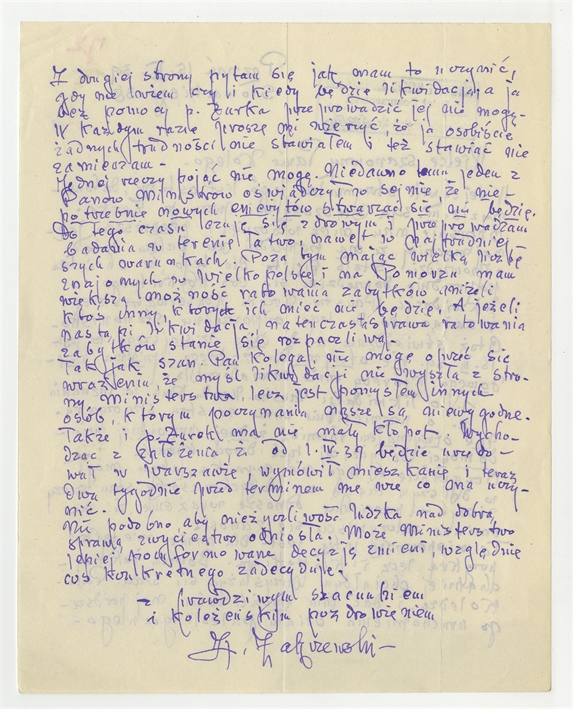 Z drugiej strony pytam się jak mam to uczynić,
gdy nie wiem czy i kiedy będzie likwidacja, a ja
bez pomocy p. Żurka przeprowadzić jej nie mogę.
W każdym razie proszę mi wierzyć, że ja osobiście
żadnych trudności nie stawiałem i też stawiać nie
zamierzam –
Jednej rzeczy pojąć nie mogę. Niedawno temu jeden z
Panów Ministrów oświadczył w sejmie, że nie-
potrzebnie nowych emerytów stwarzać się nie będzie.
Do tego czasu czuję się zdrowym i przeprowadzam
badania w terenie łatwo, nawet w najtrudniej-
szych warunkach. Poza tym mając wielką liczbę
znajomych w Wielkopolsce i na Pomorzu mam
większą możność ratowania zabytków aniżeli
ktoś inny, których ich mieć nie będzie. A jeżeli
nastąpi likwidacja, natenczas sprawa ratowania
zabytków stanie się rozpaczliwa –
Tak jak Szan. Pan Kolega, nie mogę oprzeć się
wrażeniu, że myśl likwidacji nie wyszła z stro-
ny Ministerstwa lecz jest pomysłem innych
osób, którym poczynania nasze są niewygodne.
Także i p. Żurek ma nie mały kłopot. Wycho-
dząc z założenia że od 1. IV. 39 będzie urzędo-
wał w Warszawie, wymówił mieszkanie i teraz
dwa tygodnie przed terminem nie wie co ma uczy-
nić.
Nie podobno, aby nieżyczliwość ludzka nad dobrą
sprawą zwycięstwo odniosła. Może Ministerstwo
lepiej poinformowane decyzję zmieni względnie
coś konkretnego zadecyduje.
z prawdziwym szacunkiem
i koleżeńskim pozdrowieniem
Z. Zakrzewski –